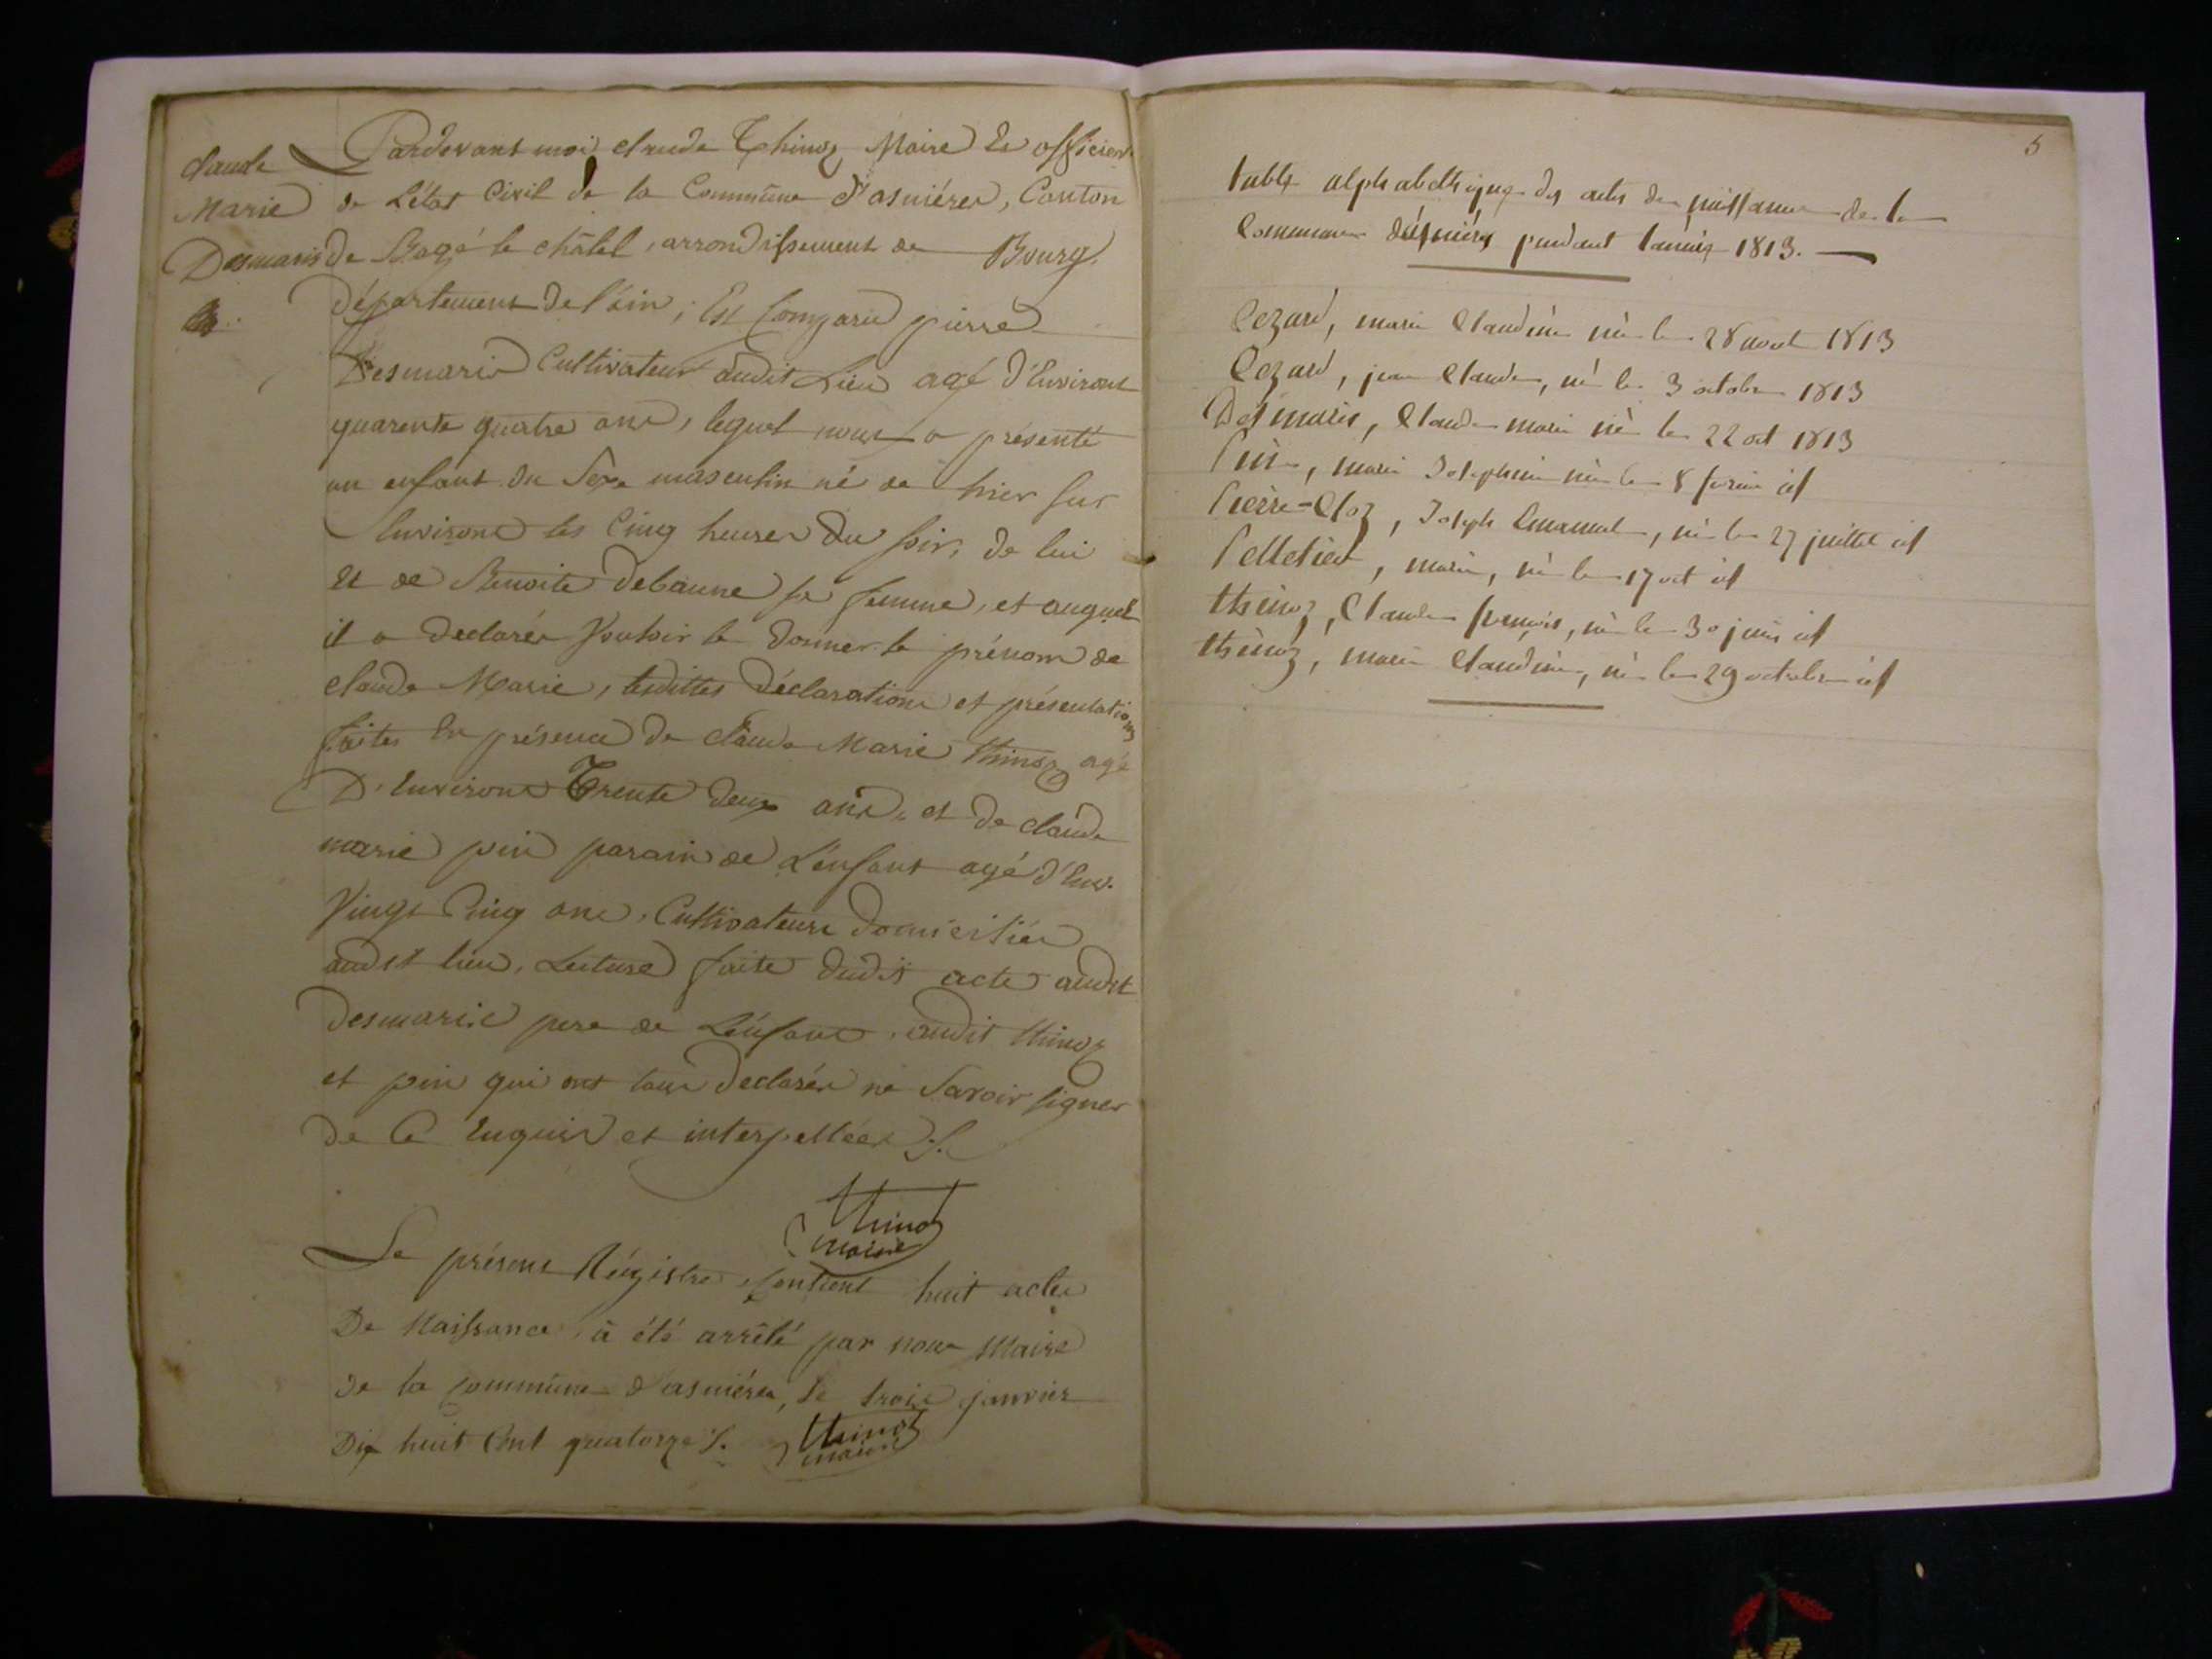 claude
Marie
Desmaris
Pardevant moi claude Thinoz Maire Et officier
de L'état Civil de la Commune d'asniéres, Canton
de Bagé le châtel, arrondissement de Bourg,
département de l'ain; Est Comparu pierre
Desmaris Cultivateur audit Lieu agé d'Environt
quarente quatre ans, lequel nous a présenté
un enfant du Sexe masculin né de hier sur
Environt les Cinq heures du soir, de lui
Et de Benoite debaune sa femme, et auquel
il a declarér Vouloir le donner le prénom de
claude Marie, lesdittes déclarations et présentations
faites En présence de claude Marie thinoz agé
D'Environt Trente deux ans, et de claude
marie pin parain de L'enfant agé d'Env.
Vingt Cinq ans, Cultivateurs domiciliés
audit lieu, Lecture faite dudit acte audit
desmaris pere de L'enfant, audit thinoz
et pin qui ont tous declarér ne Savoir signer
de Ce Enquis et interpellées ./.
thinoz
maire
Le présent Régistre Contient huit actes
De Naissance, à été arrêté par nous Maire
de la Commune d'asniéres, le trois janvier
Dix huit Cent quatorze ./.
thinoz
maire
5
table alphabethique des actes de naissance de la
Commune d'asnieres pendant l'année 1813.
Cezard, marie Claudine née le 28 aout 1813
Cezard, jean Claude, né le 3 octobre 1813
Desmaris, Claude marie né le 22 oct 1813
Pin, marie Josephine née le 8 fevrier id
Pierre-Cloz, Joseph Emanuel, né le 27 juillet id
Pelletier, marie, née le 17 oct id
thinoz, Claude françois, né le 30 juin id
thinoz, marie Claudine, née le 29 octobre id